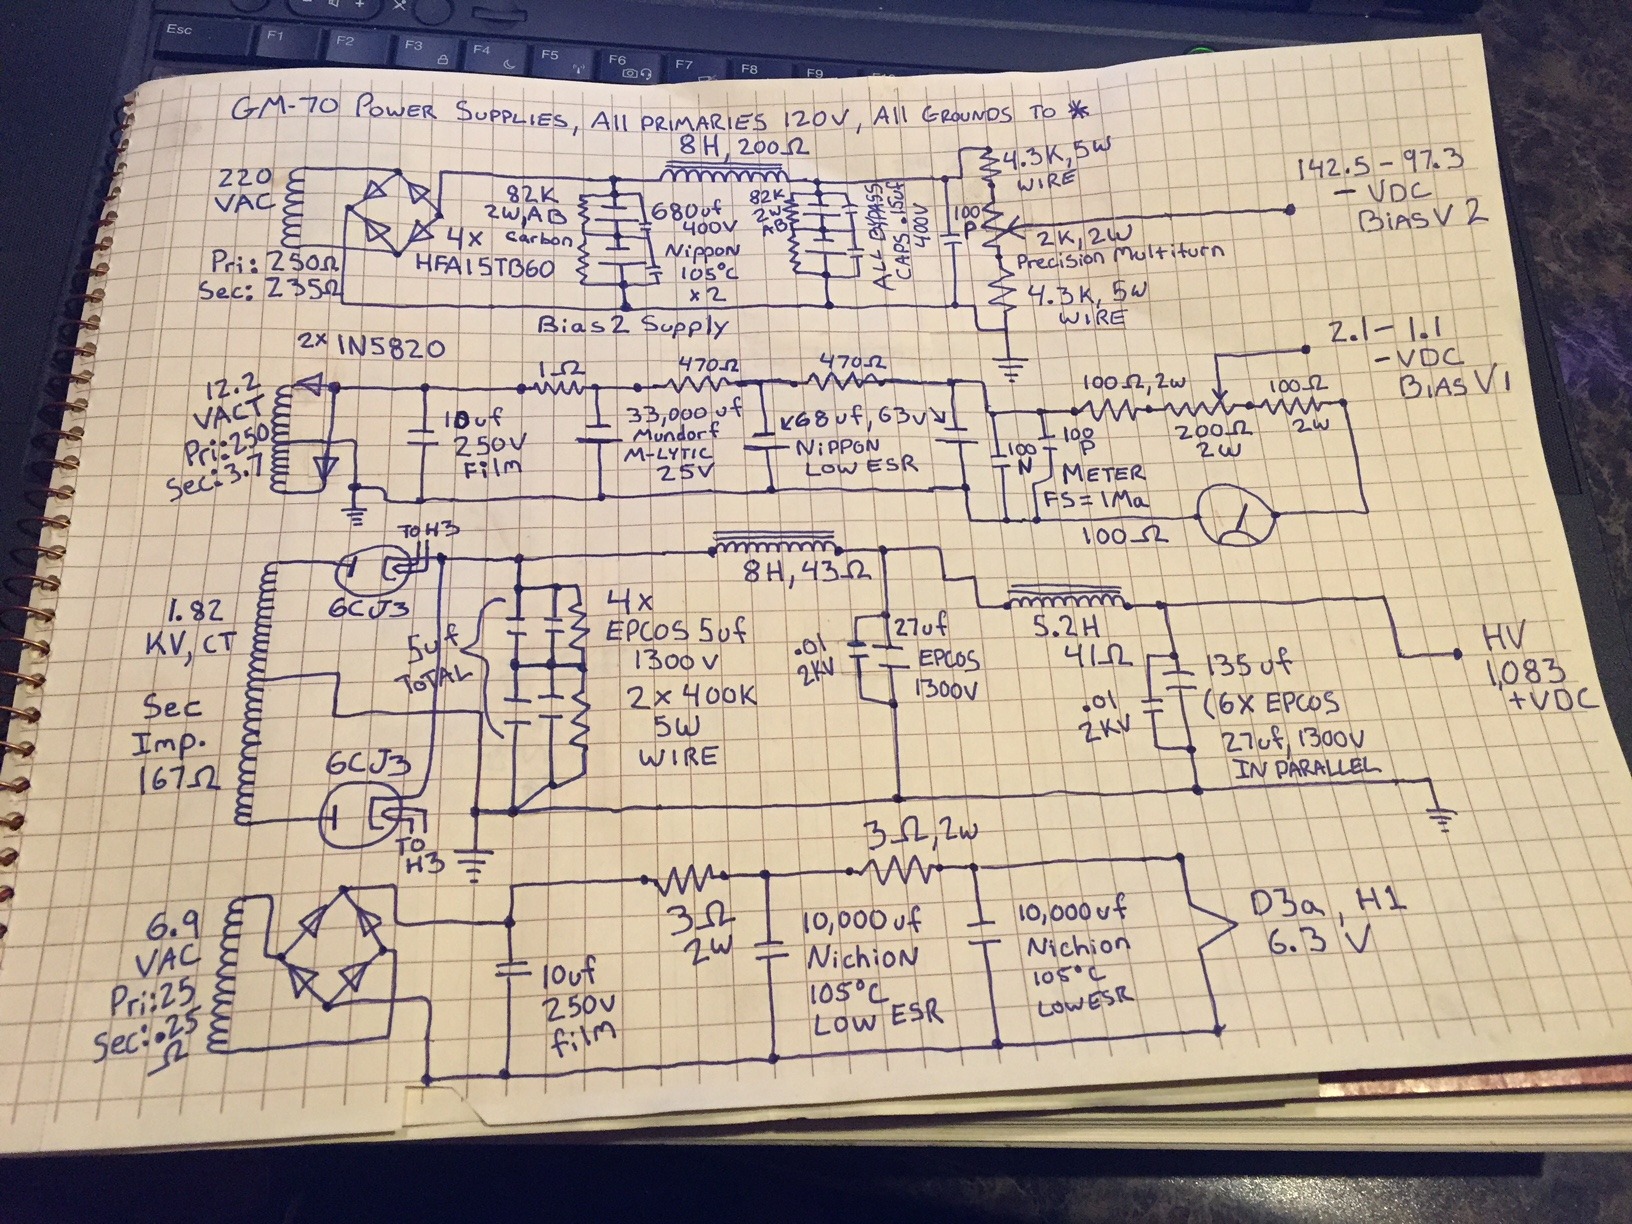 Esc
F1
F2
F3
F4
F5
F6
F7
F8
F9
GM-70 POWER SUPPLIES, All PRIMARIES 120V, All GROUNDS TO *
220
VAC
Pri: 250Ω
Sec: 235Ω
4x
HFA15TB60
82K
2W, AB
Carbon
680uf
400V
Nippon
105°C
x2
8H, 200Ω
82K
2W
AB
ALL BYPASS
CAPS .15uf
400V
100
P
4.3K, 5W
WIRE
2K, 2W
Precision Multiturn
4.3K, 5W
WIRE
142.5 - 97.3
- VDC
BiAS V2
Bias 2 Supply
2x 1N5820
12.2
VACT
Pri: 250
Sec: 3.7
10uf
250V
Film
1Ω
33,000uf
Mundorf
M-LYTIC
25V
470Ω
470Ω
68uf, 63V
NiPPON
LOW ESR
100
N
100
P
METER
FS = 1Ma
100Ω
100Ω, 2W
200Ω
2W
100Ω
2W
2.1 - 1.1
- VDC
BiAS V1
1.82
KV, CT
Sec
Imp.
167Ω
TO H3
6CJ3
6CJ3
TO
H3
5uf
TOTAL
4x
EPCOS 5uf
1300V
2 x 400K
5W
WIRE
8H, 43Ω
.01
2KV
27uf
EPCOS
1300V
5.2H
41Ω
.01
2KV
135uf
(6X EPCOS
27uf, 1300V
IN PARALLEL
HV
1,083
+VDC
6.9
VAC
Pri: 25
Sec: .25
Ω
10uf
250V
film
3Ω
2W
10,000uf
Nichion
105°C
LOW ESR
3Ω, 2W
10,000uf
Nichion
105°C
LOW ESR
D3a, H1
6.3 V